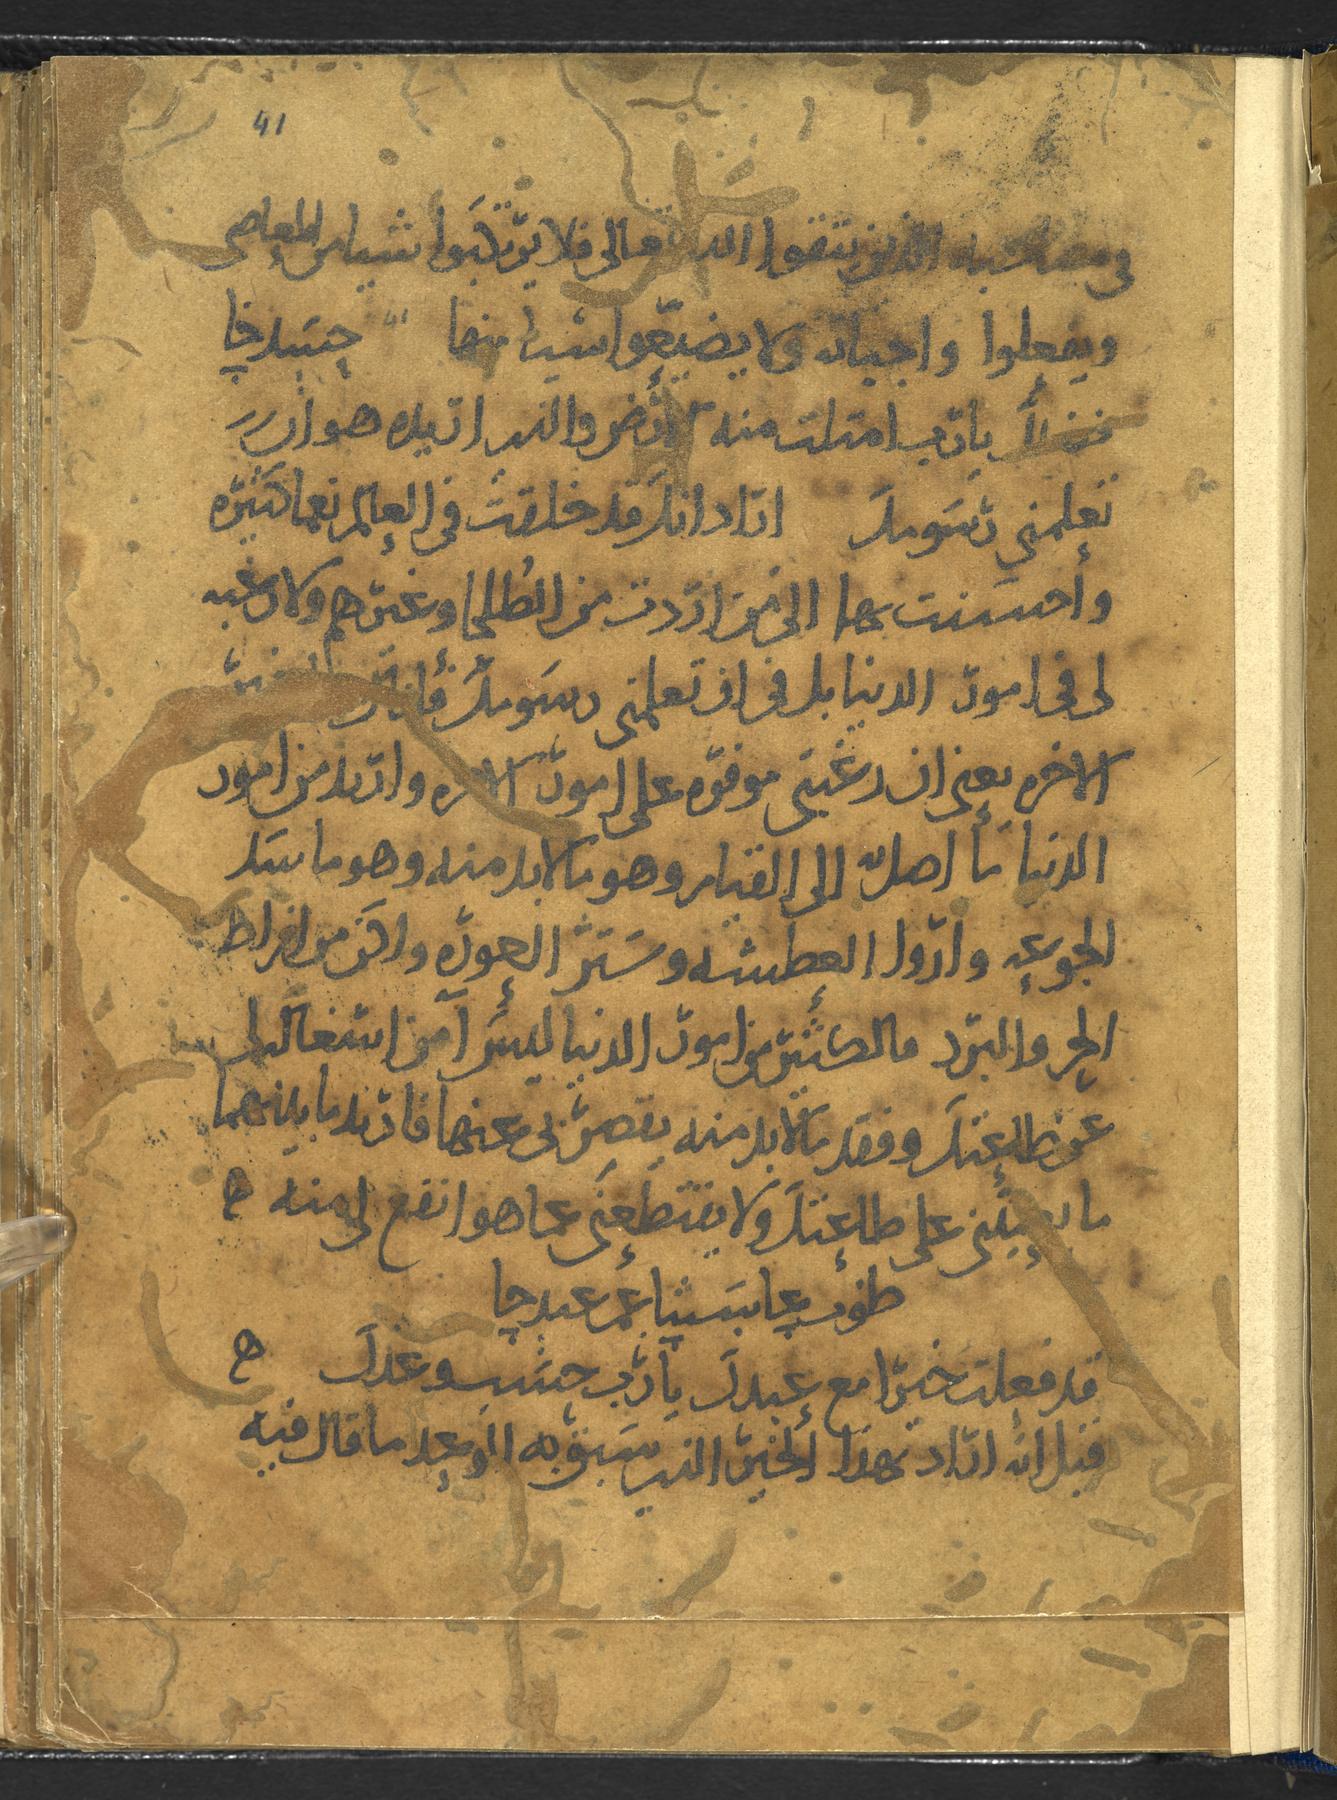 41
في مصاحبه الذين يتقوا الله تعالى فلا يرتكبوا شيا من المعاصي
ويفعلوا واجباته ولا يضيعوا شيا منها حسدخا
يارب امتلت منه الارض والذي اريده هو ان
تعلمني رسومك اراد انك قد خلقت في العالم نعما كثيره
واحسنت بها الى من اردت من الطلحا وغيرهم ولا رغبه
لي في امور الدنيا بل في ان تعلمني رسومك
الاخره يعني ان رغبتي موفره على امور الاخره واريد من امور
الدنيا ما اصل به الى القيام وهو ما لا بد منه وهو ما يسد
الجوعه واروا العطشه وستر العوره واكن من افراط
الحر والبرد فالكثير من امور الدنيا ليس آمن اشتغاله لي
عن طاعتك وفقد ما لا بد منه يقصر بي عنها فاريد ما بينهما
ما يعينني على طاعتك ولا يقتطعني عما هو انفع لي منه ه
طوب عاسيثا عم عبدخا
قد فعلت خيرا مع عبدك يارب حسب وعدك ه
قيل انه اراد بهذا الخير الذي سبق به الوعد ما قال فيه